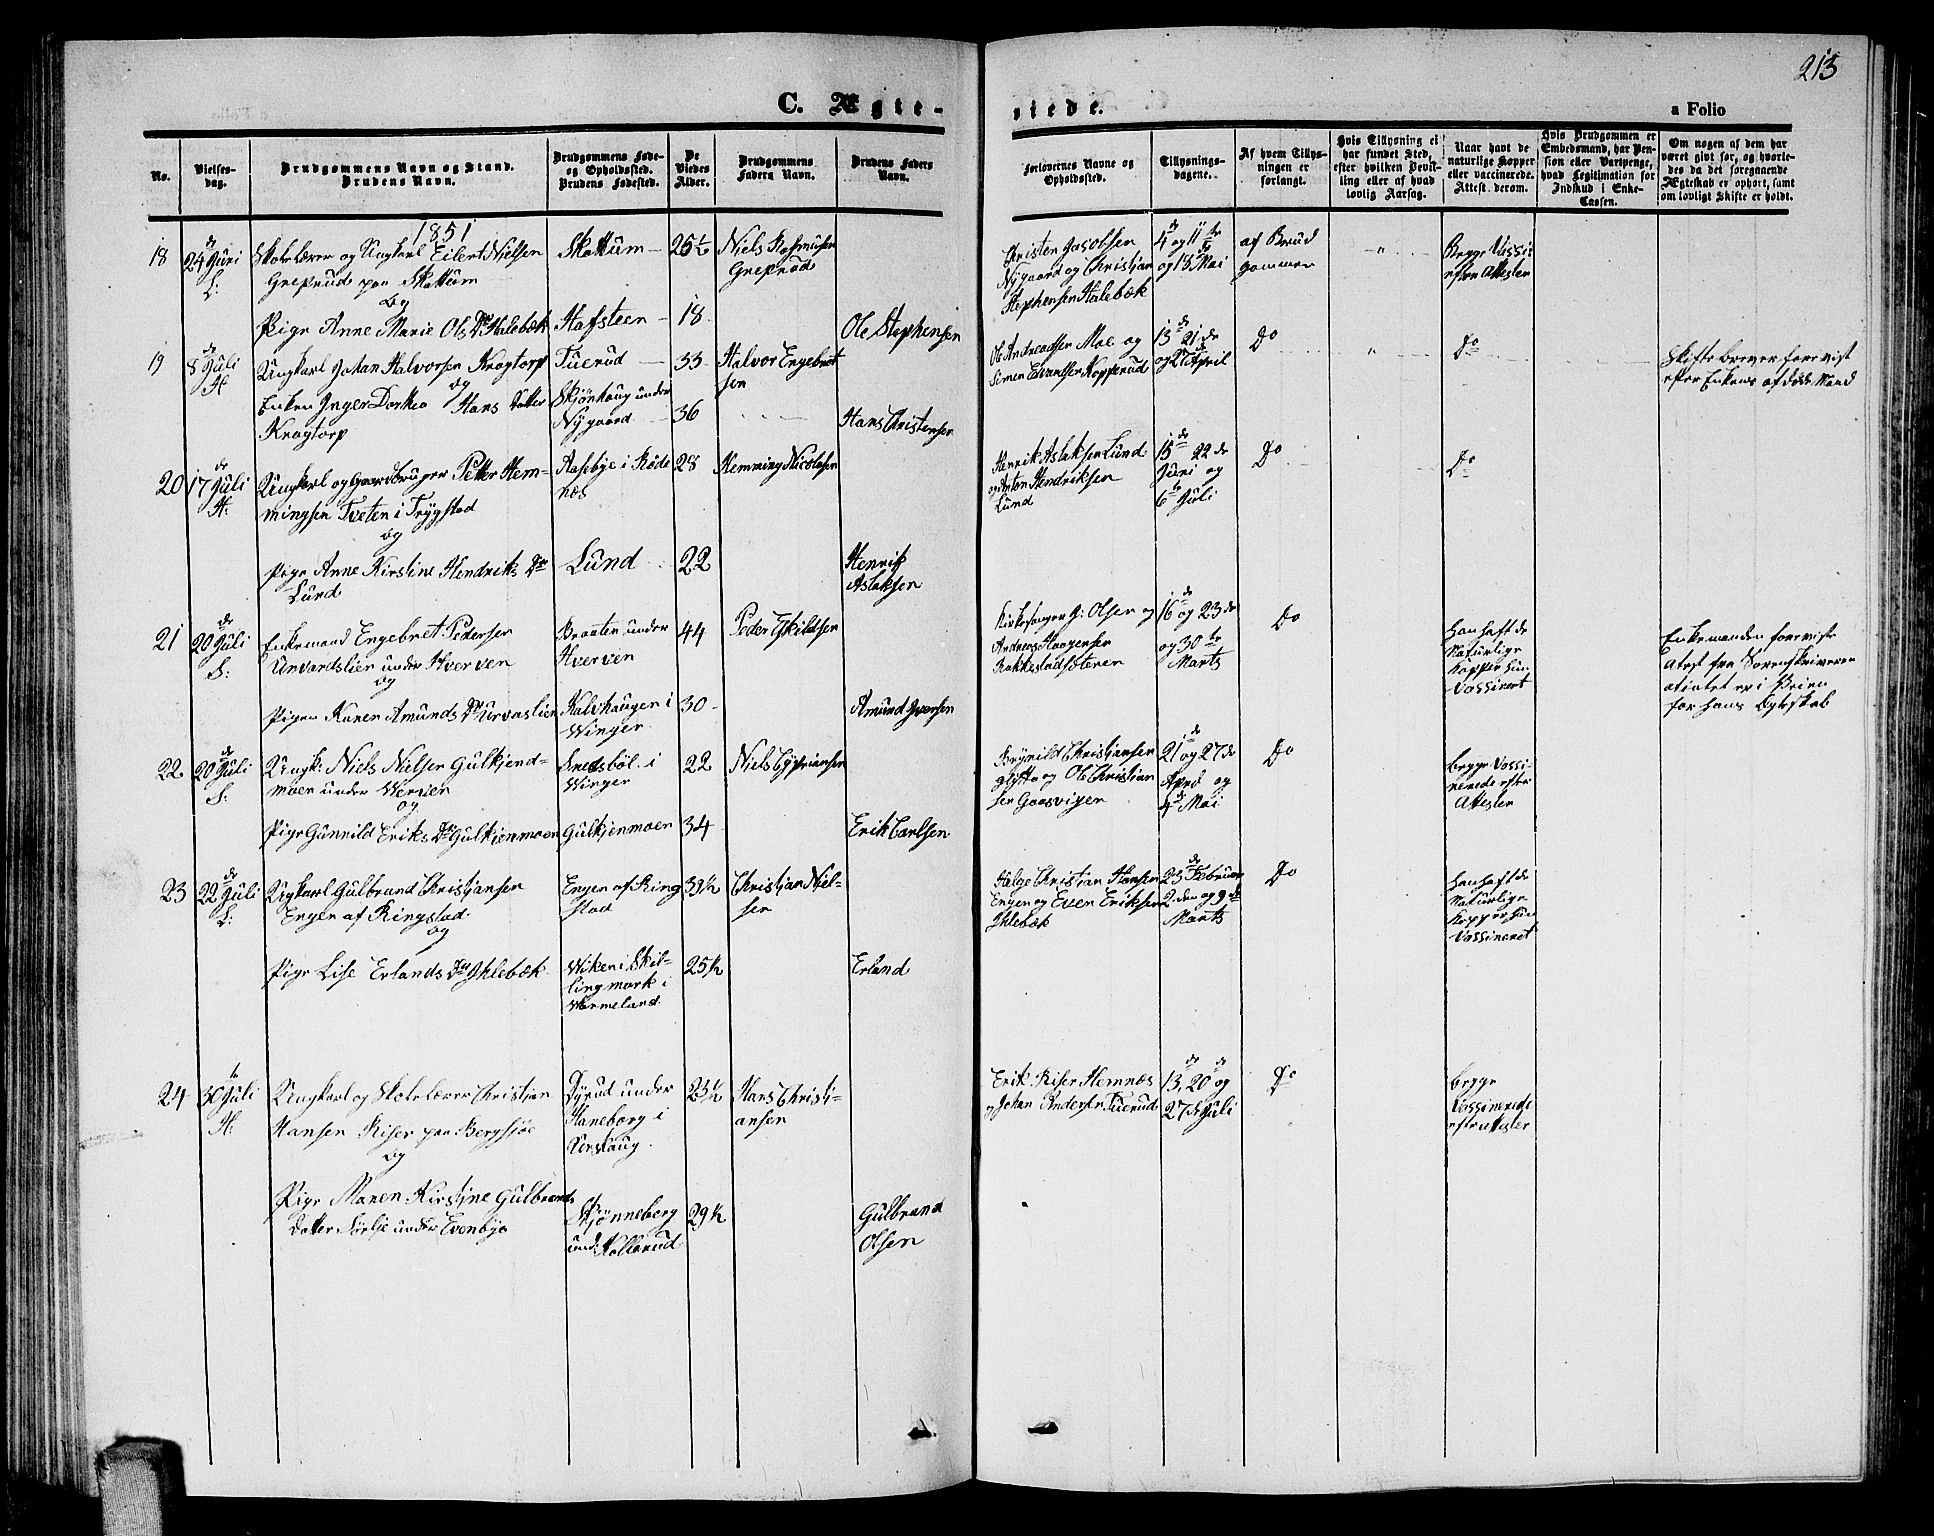 213
C. Ægte-
viede.
a Folio
No.
Vielses-
dag.
Brudgommens Navn og Stand.
Brudens Navn.
Brudgommens Føde-
og Opholdssted.
Brudens Fødested.
De
Viedes
Alder.
Brudgommens
Faders Navn.
Brudens Faders
Navn.
Forlovernes Navne og
Opholdssted.
Tillysnings-
dagene.
Af hvem Tillys-
ningen er
forlangt.
Hvis Tillysning ei
har fundet Sted,
efter hvilken Bevil-
ling eller af hvad
lovlig Aarsag.
Naar havt de
naturlige Kopper
eller vaccinerede.
Attest. derom.
Hvis Brudgommen er
Embedsmand, har Pen-
sion eller Vartpenge,
hvad Legitimation for
Indskud i Enke-
Cassen.
Om nogen af dem har
været gift før, og hvorle-
des da det foregaaende
Ægteskab er ophørt, samt
om lovligt Skifte er holdt.
1851
18
24de Juni
L:
Skolelærer og Ungkarl Eilert Nielsen
Greprud paa Skattum
og
Pige Anne Marie Ols Dtr Halebæk
Skattum
Hafsteen
25½
18
Niels Rasmusen
Greprud
Ole Stephensen
Christen Jacobsen
Nygaard og Christian
Stephensen Halebæk
4de og 11te
og 18de Mai
af Brud
gommen
"
Begge Vassi-
efter Attester
19
8de Juli
H
Ungkarl Johan Halvorsen Kragtorp
og
Enken Inger Dorthea Hans Datter
Kragtorp
Tuerud
Skjønhaug under
Nygaard
33
36
Halvor Engebret
sen
Hans Christensen
Ole Andreassen Moe og
Simen Edvardsen Kopperud
13de 21de
og 27de April
Do
"
Do
Skiftebrever forevist
efter Enkens afdøde Mand
20
17de Juli
H.
Ungkarl og Gaardbruger Petter Hem-
mingsen Tveten i Trygstad
og
Pige Anne Kirstine Hendriks Dtr
Lund
Aasebye i Røde
næs
Lund
28
22
Hemming Nicolaisen
Henrik
Aslaksen
Henrik Aslaksen Lund
og Anton Hendriksen
Lund
15de 22de
Juni og
6te Juli
Do
Do
21
20de Juli
S:
Enkemand Engebret Pedersen
Unvardslien under Hverven
og
Pigen Karen Amunds Dtr Urvaslien
Braaten under
Hverven
Kalvhaugen i
Winger
44
30
Peder Eskildsen
Amund Iversen
Kirkesanger J: Olsen og
Andreas Haagensen
Rakkestadsæteren
16de og 23de
og 30te
Marts
Do
Han haft de
Naturlige
Kopper hun
Vassinert
Enkemanden foreviste
Atest fra Sorenskriveren
for hans Egteskab
22
20de Juli
S:
Ungk: Niels Nielsen Gulkjend-
moen under
og
Pige Gunnild Eriks Dtr Gulkjenmoen
Snedsböl i
Winger
Gulkjenmoen
22
34
Niels Cyprianssen
Erik Carlsen
Brynild Christjansen
og Ole Christian
sen Gaasvigen
21de og 27de
April og
4de Mai
Do
Begge Vassi-
nerede efter
Attester
23
22de Juli
L:
Ungkarl Gulbrand Christjansen
Engen af Ringstad
og
Pige Lise Erlands Dtr Ihlebæk
Engen af Ring
stad
Wiken i Skil-
lingmark i
Wermeland
39½
25½
Christjan Niel-
sen
Erland
Helge Christian Hansen
Engen og Even Eriksen
Ihlebæk
23de Februar
2den og 9de
Marts
Do
Han haft de
Naturlige
Kopper hun
Vassineret
24
30te Juli
H.
Ungkarl og Skolelærer Christjan
Hansen Riser paa Bergsjøe
og
Pige Maren Kirstine Gulbrands
Datter Sørlie under Evenbye
Dyrud under
Haneborg i
Urskaug.
Skjønneberg
und. Kollerud
23½
29½
Hans Christj-
ansen
Gulbrand
Olsen
Erik Riser Hemnæs
og Johan Andersen Tuerud
13de, 20de og
27de Juli
Do
Begge
Vassinerede
efter Attester